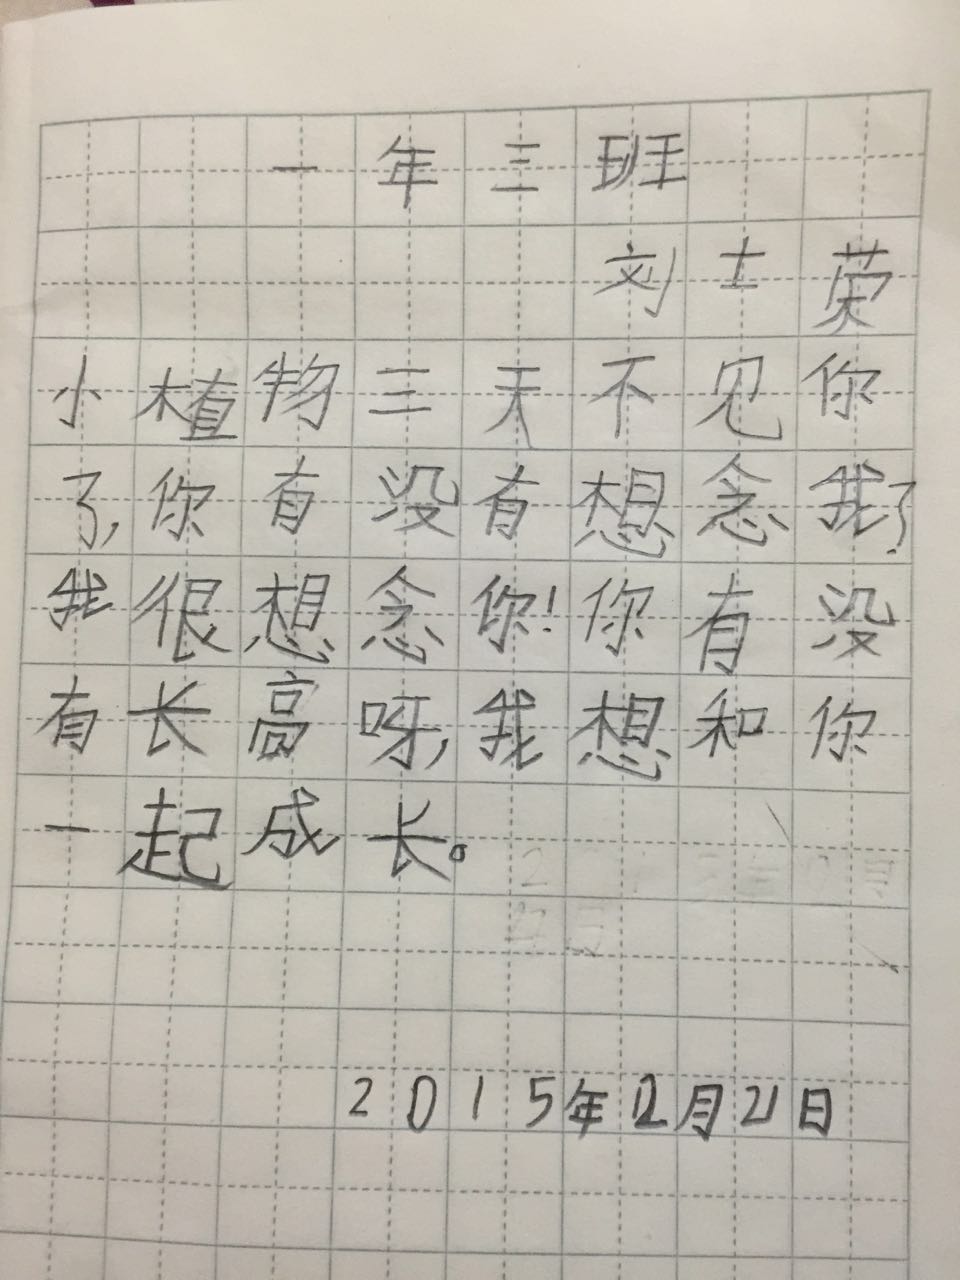 一年三班
刘士英
小植物三天不见你
了,你有没有想念我了?
我很想念你!你有没
有长高呀,我想和你
一起成长。
2015年12月21日